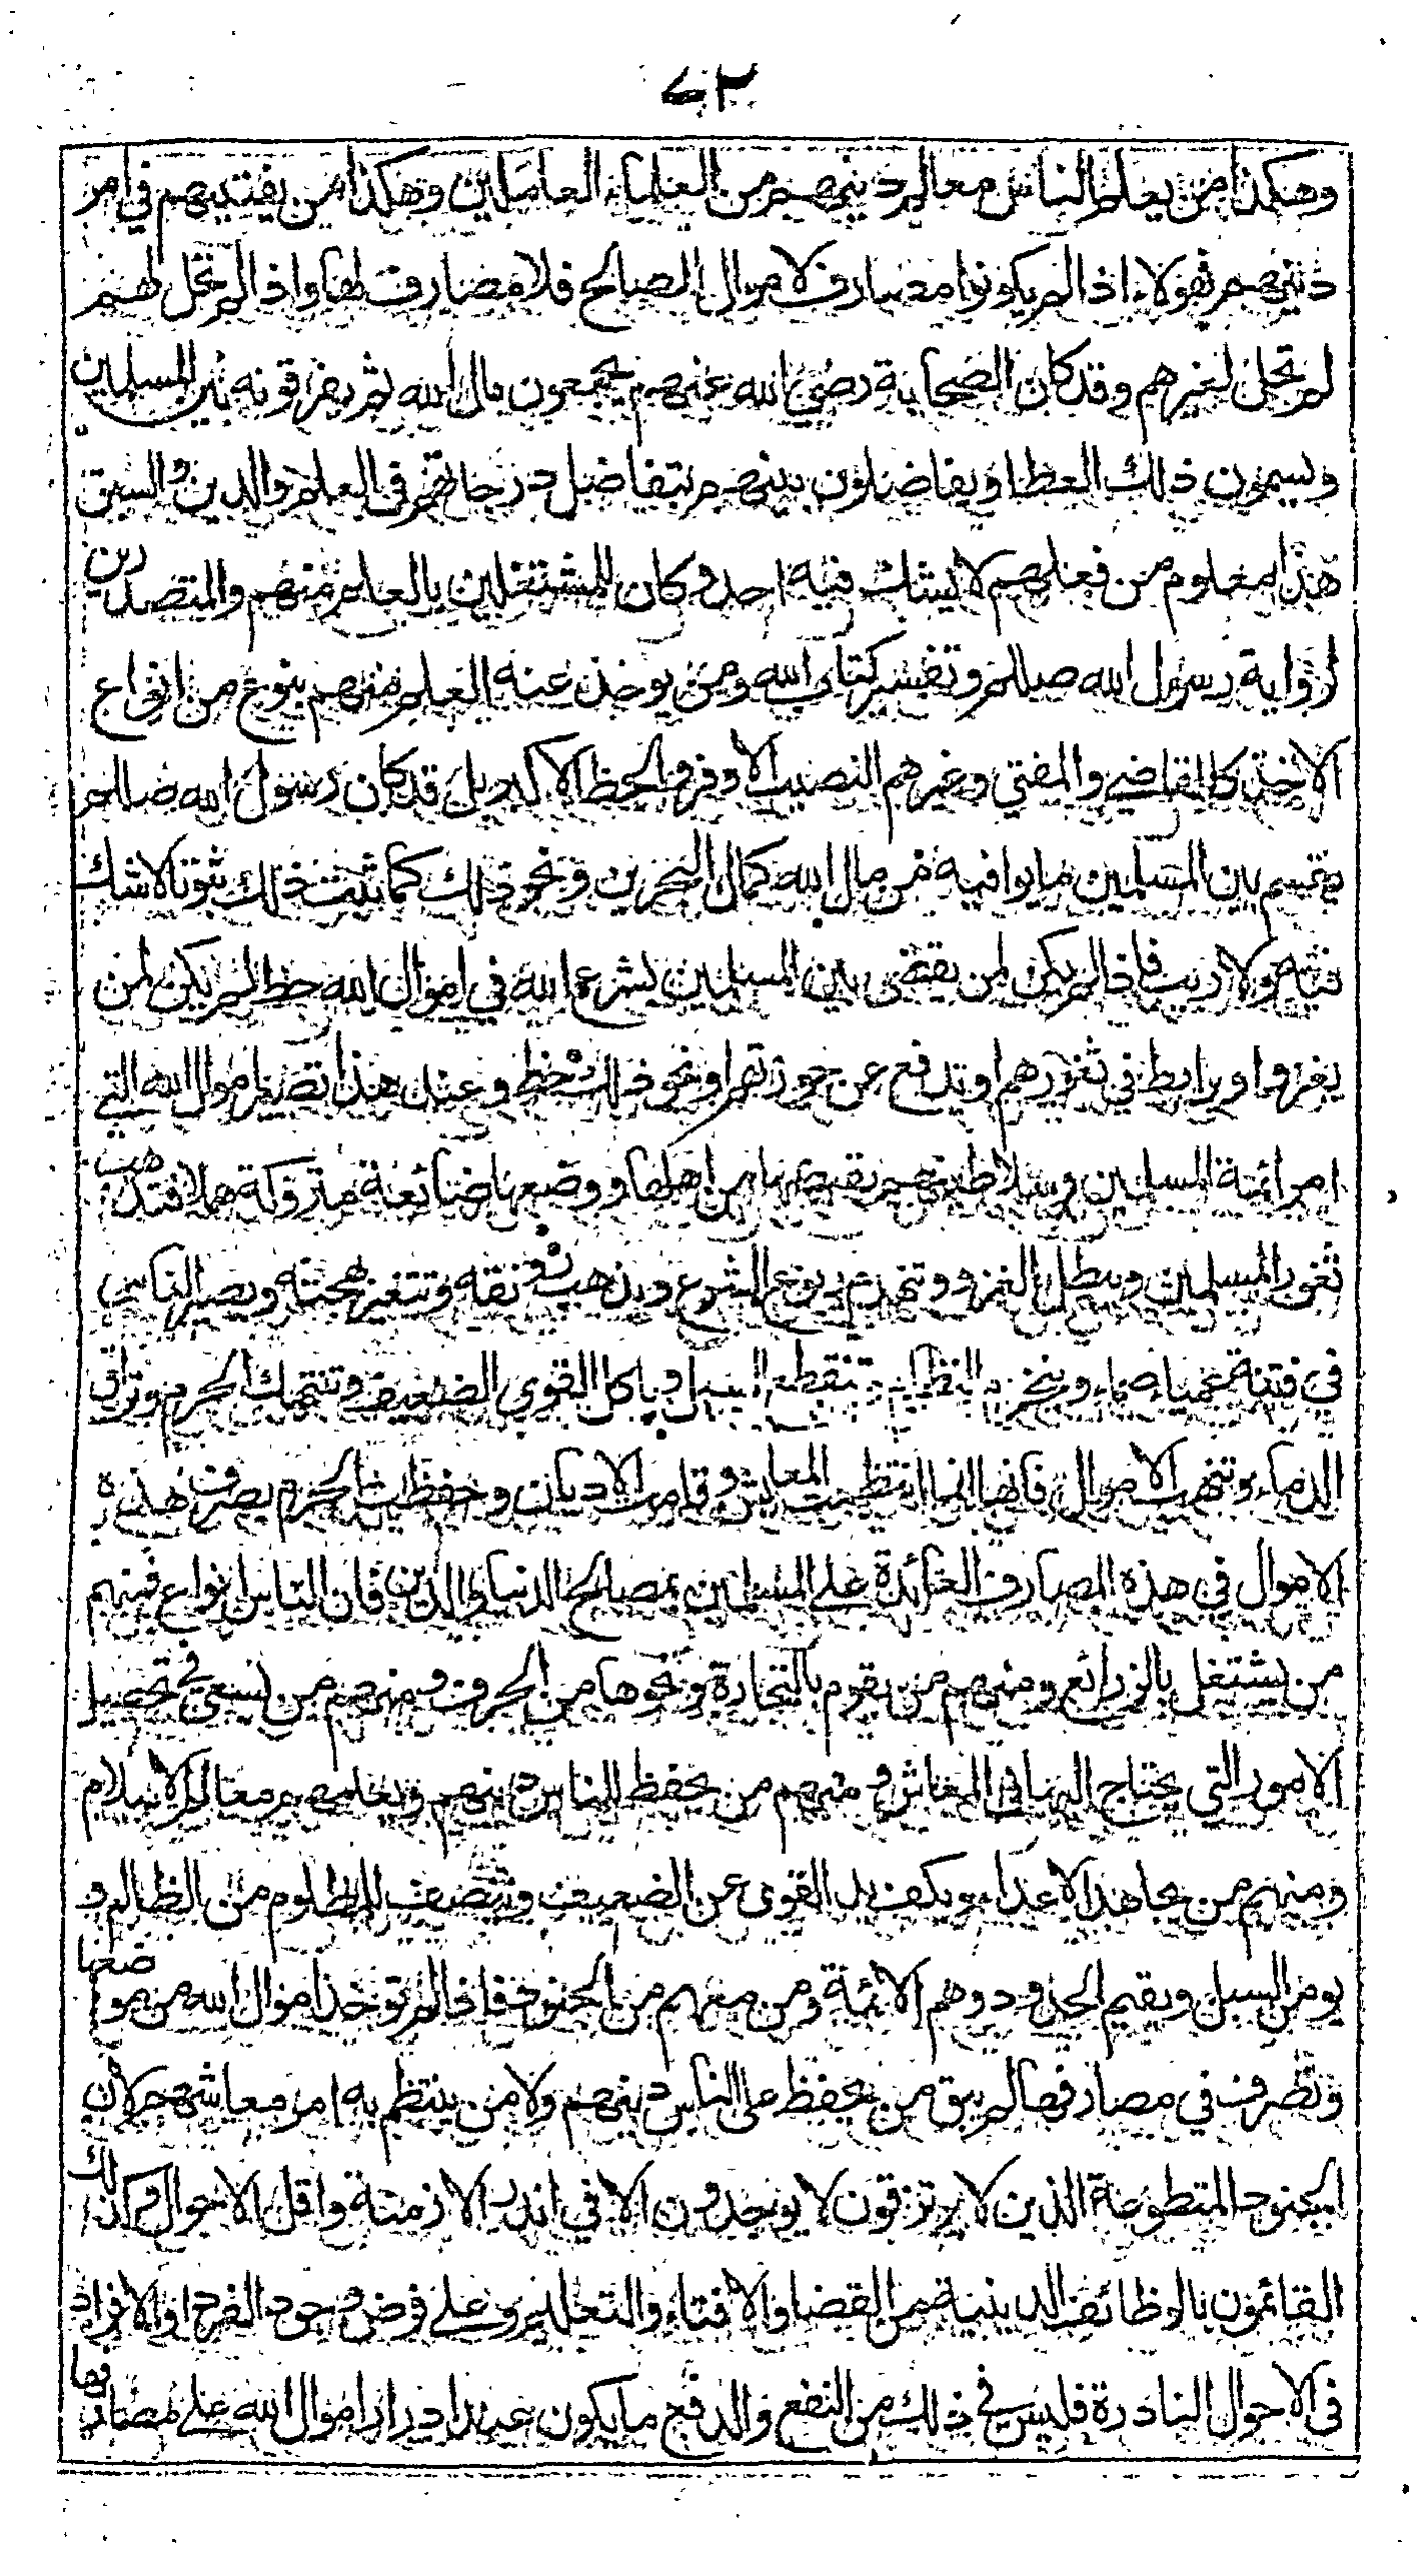 ٤٢
وهكذا من يعلم الناس معالم دينهم من العلماء العاملين وهكذا من يفتيهم في امر
دينهم فهولاء اذا لم يكونوا مصارف لاموال المصالح فلا مصارف لها واذا لم تحل لهم
لم تحل لغيرهم وقد كان الصحابة رضي الله عنهم يجمعون مال الله ثم يفرقونه بين المسلمين
ويسمون ذلك العطا ويفاضلون بينهم بتفاضل درجاتهم في العلم والدين والسبق
هذا معلوم من فعلهم لا يشك فيه احد وكان للمشتغلين بالعلم منهم والمتصدرين
لرواية رسول الله صللم وتفسير كتاب الله ومن يوخذ عنه العلم منهم بنوع من انواع
الاخذ كالقاضي والمفتي وغيرهم النصيب الاوفر والحظ الاكبر بل قد كان رسول الله صللم
يقسم بين المسلمين ما يوافيه من مال الله كمال البحرين ونحو ذلك كما ثبت ذلك ثبوتا لا شك
فيه ولا ريب فاذا لم يكن لمن يقضي بين المسلمين بشرع الله في اموال الله حظ لم يكن لمن
يغزوا ويرابط في ثغورهم او يدفع عن حوزتهم او نحو ذلك حظ وعند هذا تصير اموال الله التي
امر ائمة المسلمين وسلاطينهم بقبضها من اهلها ووضعها ضائعة متروكة هملا فتذهب
ثغور المسلمين ويبطل الغزو وتنهدم ربوع الشرع ويذهب رونقه وتتغير بهجته ويصير الناس
في فتنة عمياء صماء وينخرم النظام تنقطع السبل وياكل القوي الضعيف وتنتهك الحرم وتراق
الدماء وتنهب الاموال فانها انما انتظمت المعايش وقامت الاديان وحفظت الحرم بصرف هذه
الاموال في هذه المصارف العائدة على المسلمين بمصالح الدنيا والدين فان الناس انواع فمنهم
من يشتغل بالزرائع ومنهم من يقوم بالتجارة ونحوها من الحرف ومنهم من يسعى في تحصيل
الامور التي يحتاج اليها في المعاش ومنهم من يحفظ للناس دينهم ويعلمهم معالم الاسلام
ومنهم من يجاهد الاعداء ويكف يد القوى عن الضعيف وينصف للمظلوم من الظالم و
يومن السبل ويقيم الحدود وهم الائمة ومن معهم من الجنود فاذا لم توخذ اموال الله من مواضعها
وتصرف في مصارفها لم يبق من يحفظ على الناس دينهم ولا من ينتظم به امر معاشهم لان
الجنود المتطوعة الذين لا يرتزقون لا يوجدون الا في اندر الازمنة واقل الاحوال وكذلك
القائمون بالوظائف الدينية من القضا والافتاء والتعليم وعلى فرض وجود الفرد او الافراد
في الاحوال النادرة فليس في ذلك من النفع والدفع ما يكون عند ادرار اموال الله على مصارفها